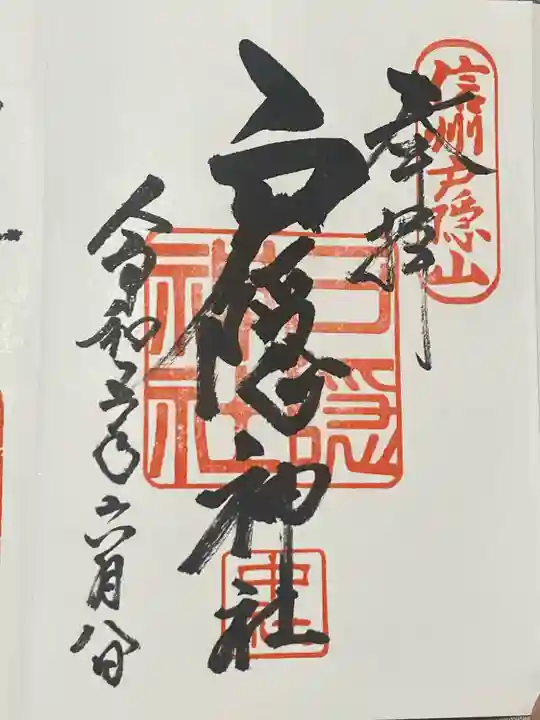 信州戸隠山
奉拝
戸隠神社
戸隠神社
中社
令和五年六月八日